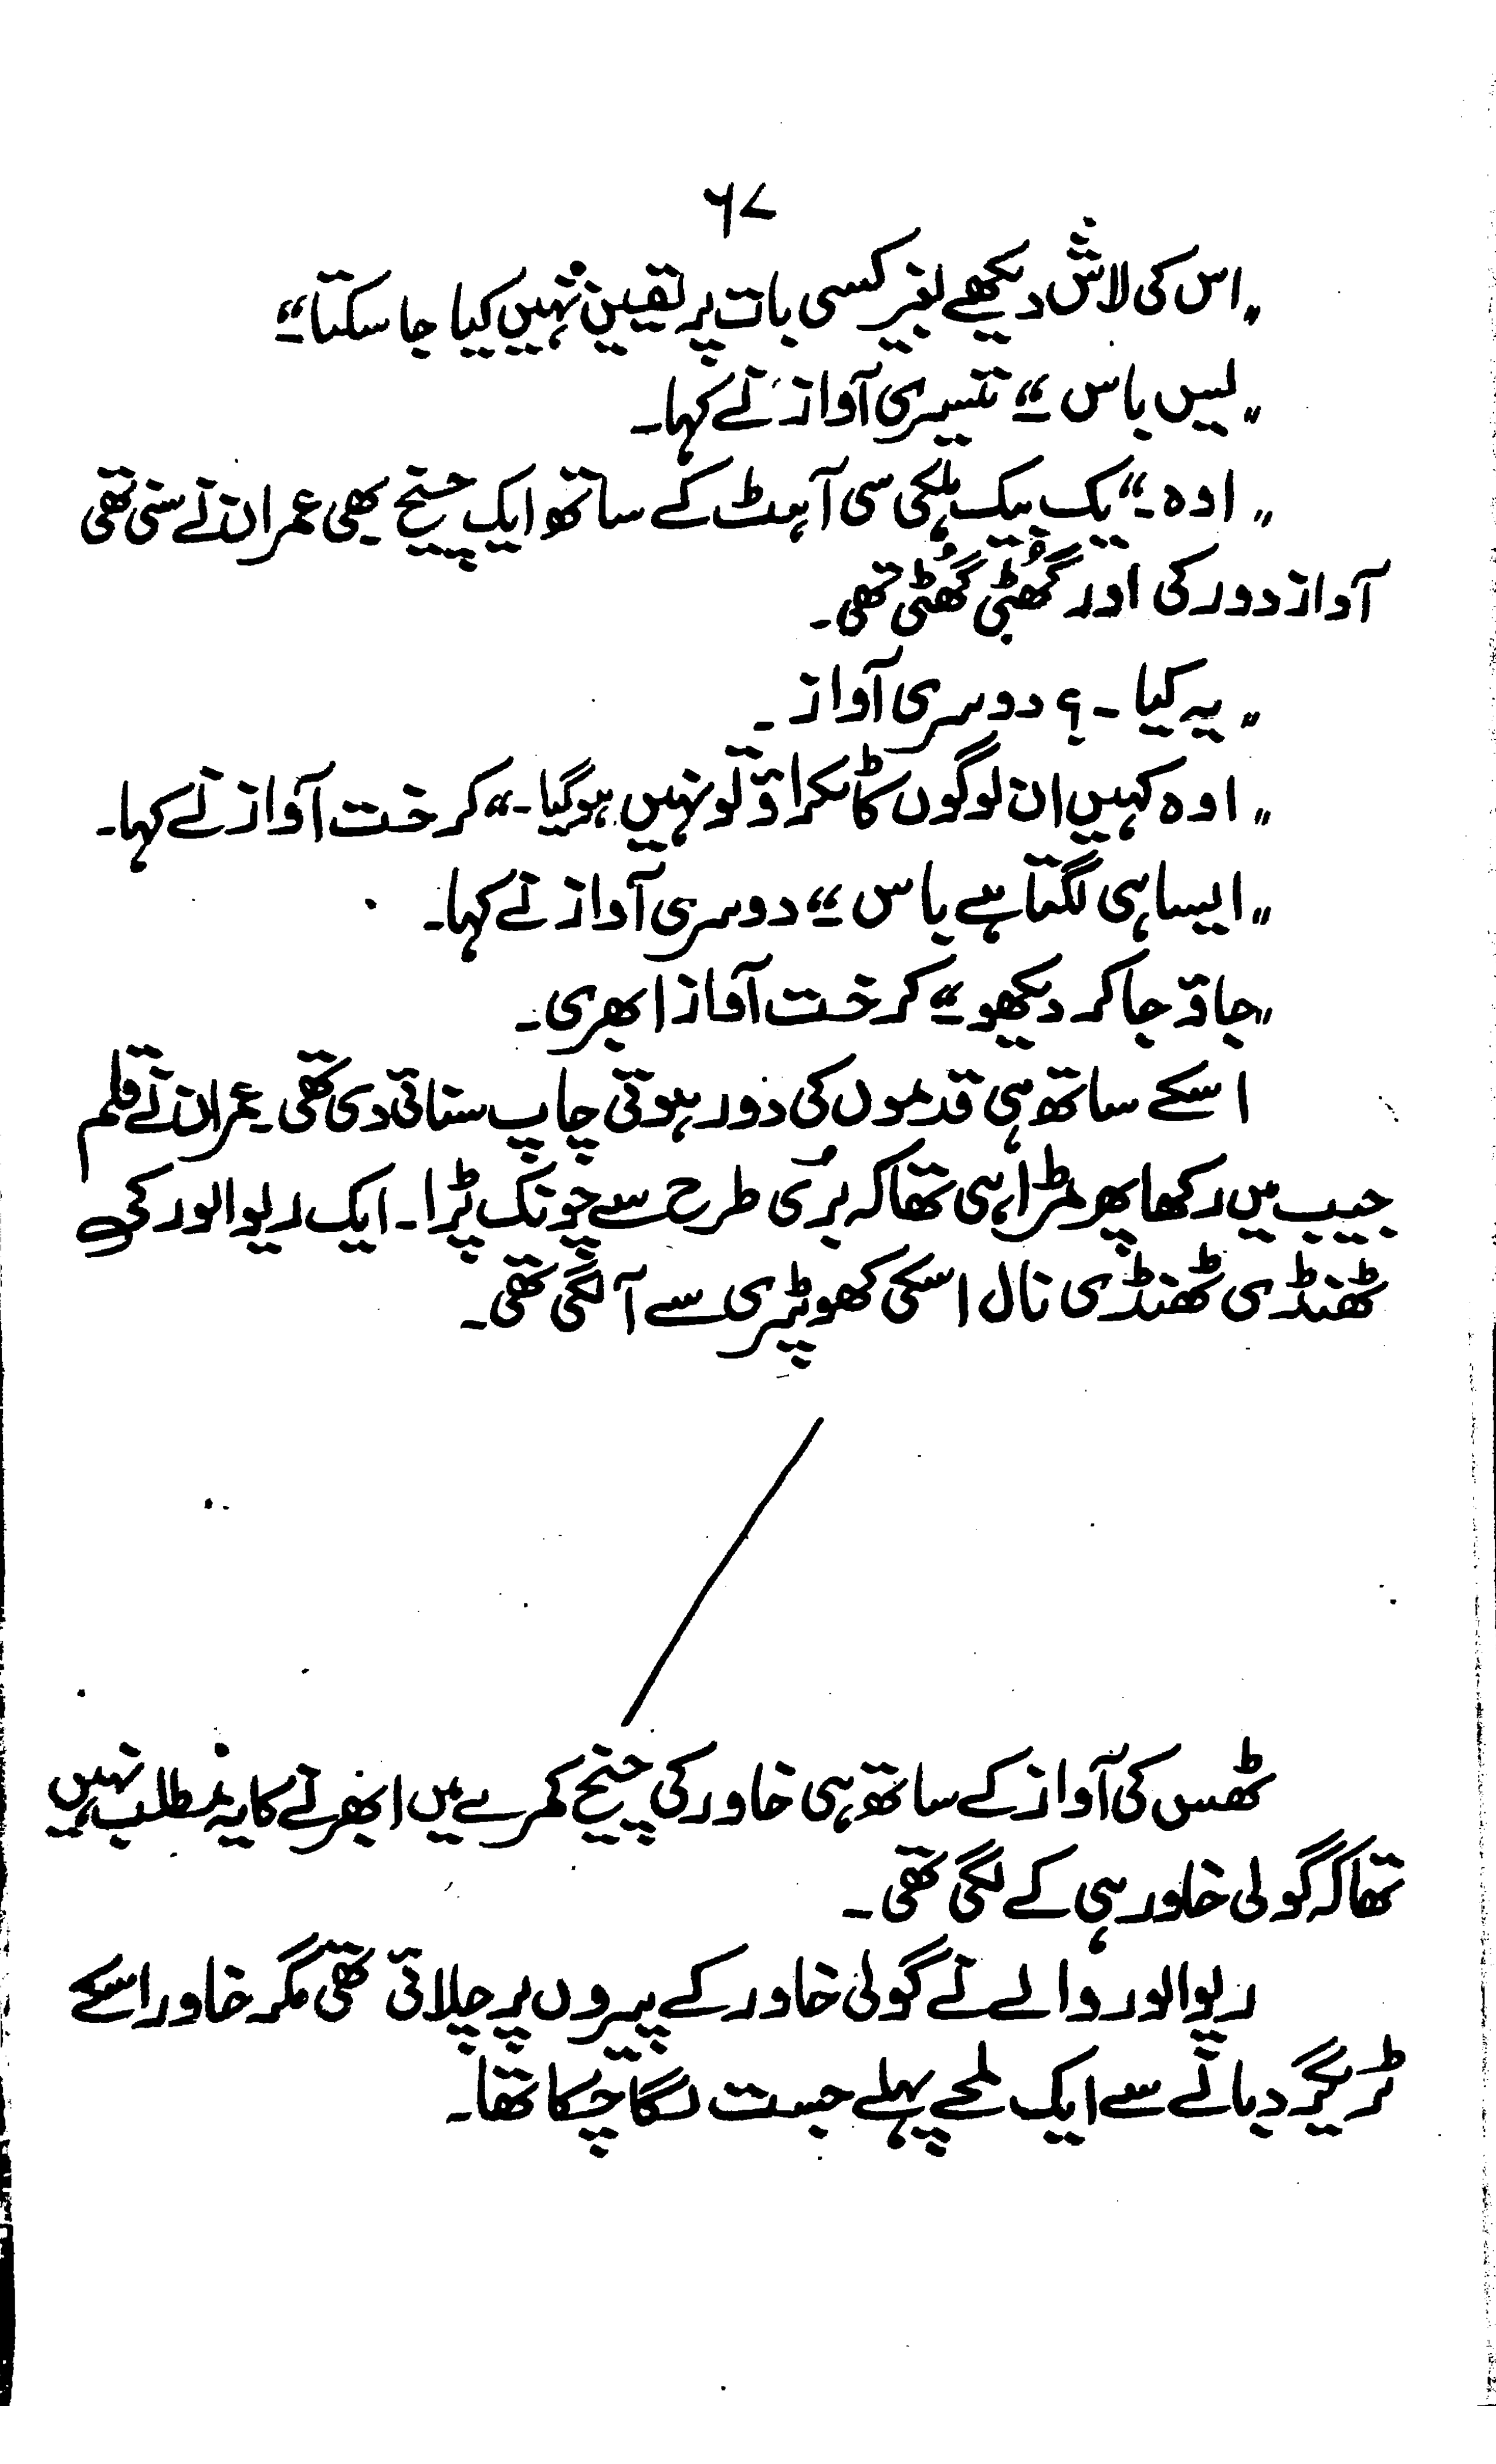 ۶۷
"اس کی لاش دیکھے بغیر کسی بات پر یقین نہیں کیا جا سکتا۔"
"یس باس۔" تیسری آواز نے کہا۔
"اوہ۔" یک بیک ہلکی سی آہٹ کے ساتھ ایک چیخ بھی عمران نے سنی تھی
آواز دور کی اور گھُٹی گھُٹی تھی۔
"یہ کیا۔؟ دوسری آواز۔
"اوہ کہیں ان لوگوں کا ٹکراؤ تو نہیں ہو گیا۔" کرخت آواز نے کہا۔
"ایسا ہی لگتا ہے باس۔" دوسری آواز نے کہا۔
"جاؤ جا کر دیکھو۔" کرخت آواز ابھری۔
اسکے ساتھ ہی قدموں کی دور ہوتی چاپ سنائی دی تھی۔ عمران نے قلم
جیب میں رکھا پھر مڑا ہی تھا کہ بُری طرح سے چونک پڑا۔ ایک ریوالور کی
ٹھنڈی ٹھنڈی نال اسکی کھوپڑی سے آ لگی تھی۔
ٹھس کی آواز کے ساتھ ہی خاور کی چیخ کمرے میں ابھرنے کا یہ مطلب نہیں
تھا کہ گولی خاور ہی کے لگی تھی۔
ریوالور والے نے گولی خاور کے پیروں پر چلائی تھی مگر خاور اسکے
ٹریگر دبانے سے ایک لمحے پہلے جست لگا چکا تھا۔